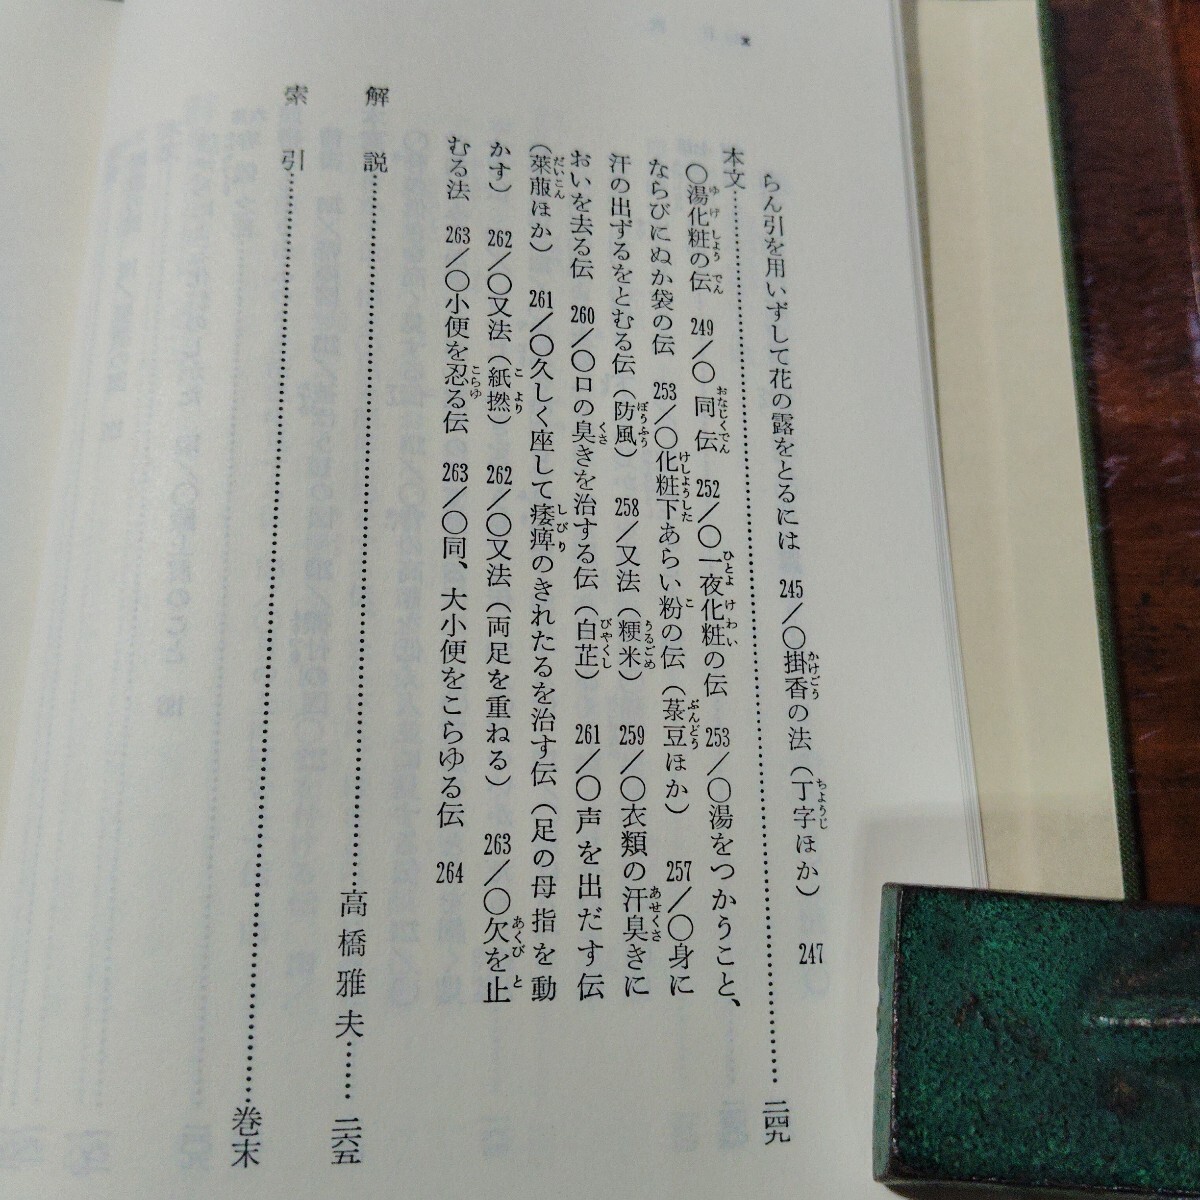 らん引を用いずして花の露をとるには 245／○掛香の法（丁字ほか） 247
本文…………二四九
○湯化粧の伝 249／○同伝 252／○一夜化粧の伝 253／○湯をつかうこと、
ならびにぬか袋の伝 253／○化粧下あらい粉の伝（菉豆ほか） 257／○身に
汗の出ずるをとむる伝（防風） 258／又法（粳米） 259／○衣類の汗臭きに
おいを去る伝 260／○口の臭きを治する伝（白芷） 261／○声を出だす伝
（萊菔ほか） 261／○久しく座して痿痺のきれたるを治す伝（足の母指を動
かす） 262／○又法（紙撚） 262／○又法（両足を重ねる） 263／○欠を止
むる法 263／○小便を忍る伝 263／○同、大小便をこらゆる伝 264
解説…………高橋雅夫……二六五
索引…………巻末